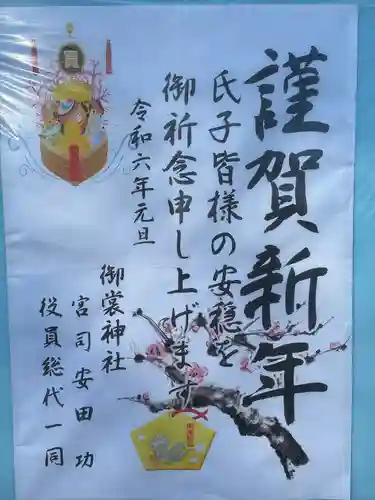 謹賀新年
氏子皆様の安穏を
御祈念申し上げます
令和六年元旦
御裳神社
宮司安田功
役員総代一同